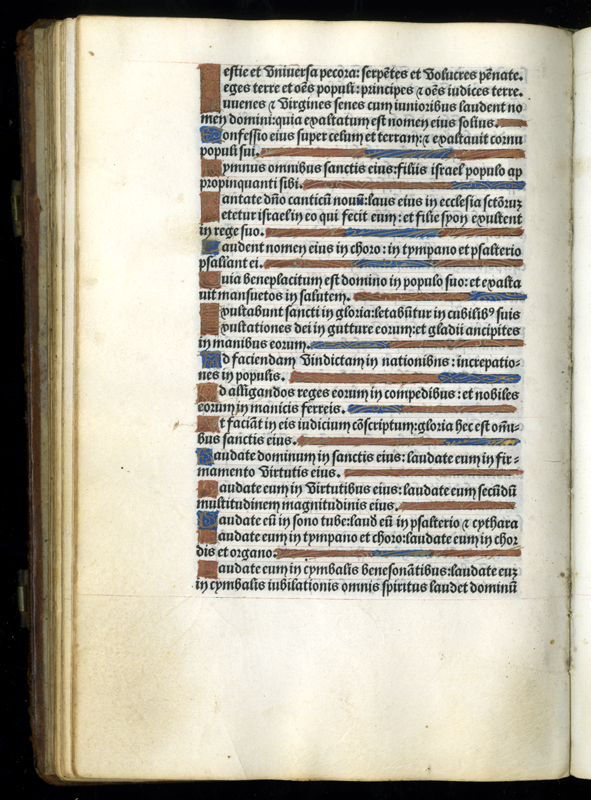 Bestie et Vniuersa pecora: serpētes et Volucres pēnate.
Reges terre et oēs populi: principes ⁊ oēs iudices terre.
Iuuenes ⁊ Virgines senes cum iunioribus laudent no
men domini: quia exaltatum est nomen eius solius.
Confessio eius super celum et terram: ⁊ exaltauit cornu
populi sui.
Hymnus omnibus sanctis eius: filiis israel populo ap
propinquanti sibi.
Cantate dño canticū nouū: laus eius in ecclesia sctõruꝫ
Letetur israel in eo qui fecit eum: et filie syon exultent
in rege suo.
Laudent nomen eius in choro: in tympano et psalterio
psallant ei.
Quia beneplacitum est domino in populo suo: et exalta
uit mansuetos in salutem.
Exultabunt sancti in gloria: letabūtur in cubilibꝰ suis
Exultationes dei in gutture eorum: et gladii ancipites
in manibus eorum.
Ad faciendam Vindictam in nationibus: increpatio-
nes in populis.
Ad alligandos reges eorum in compedibus: et nobiles
eorum in manicis ferreis.
Ut faciāt in eis iudicium cōscriptum: gloria hec est oñi-
bus sanctis eius.
Laudate dominum in sanctis eius: laudate eum in fir-
mamento Virtutis eius.
Laudate eum in Virtutibus eius: laudate eum secūdū
multitudinem magnitudinis eius.
Laudate eū in sono tube: laud eū in psalterio ⁊ cythara
Laudate eum in tympano et choro: laudate eum in chor
dis et organo:
Laudate eum in cymbalis benesonātibus: laudate euꝫ
in cymbalis iubilationis omnis spiritus laudet dominū